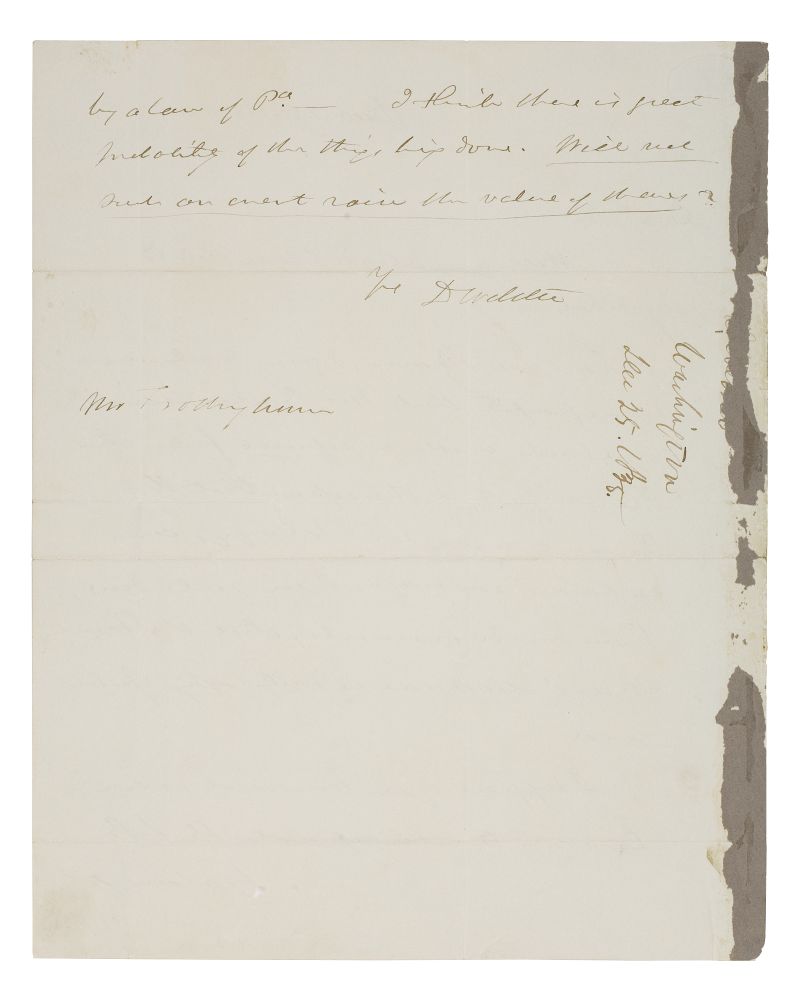 by a law of Pa. — I think there is great
probability of the thing's being done. Will not
such an event raise the value of shares?
Yrs D Webster
Mr Frothingham
Washington
Dec 25. 1835.